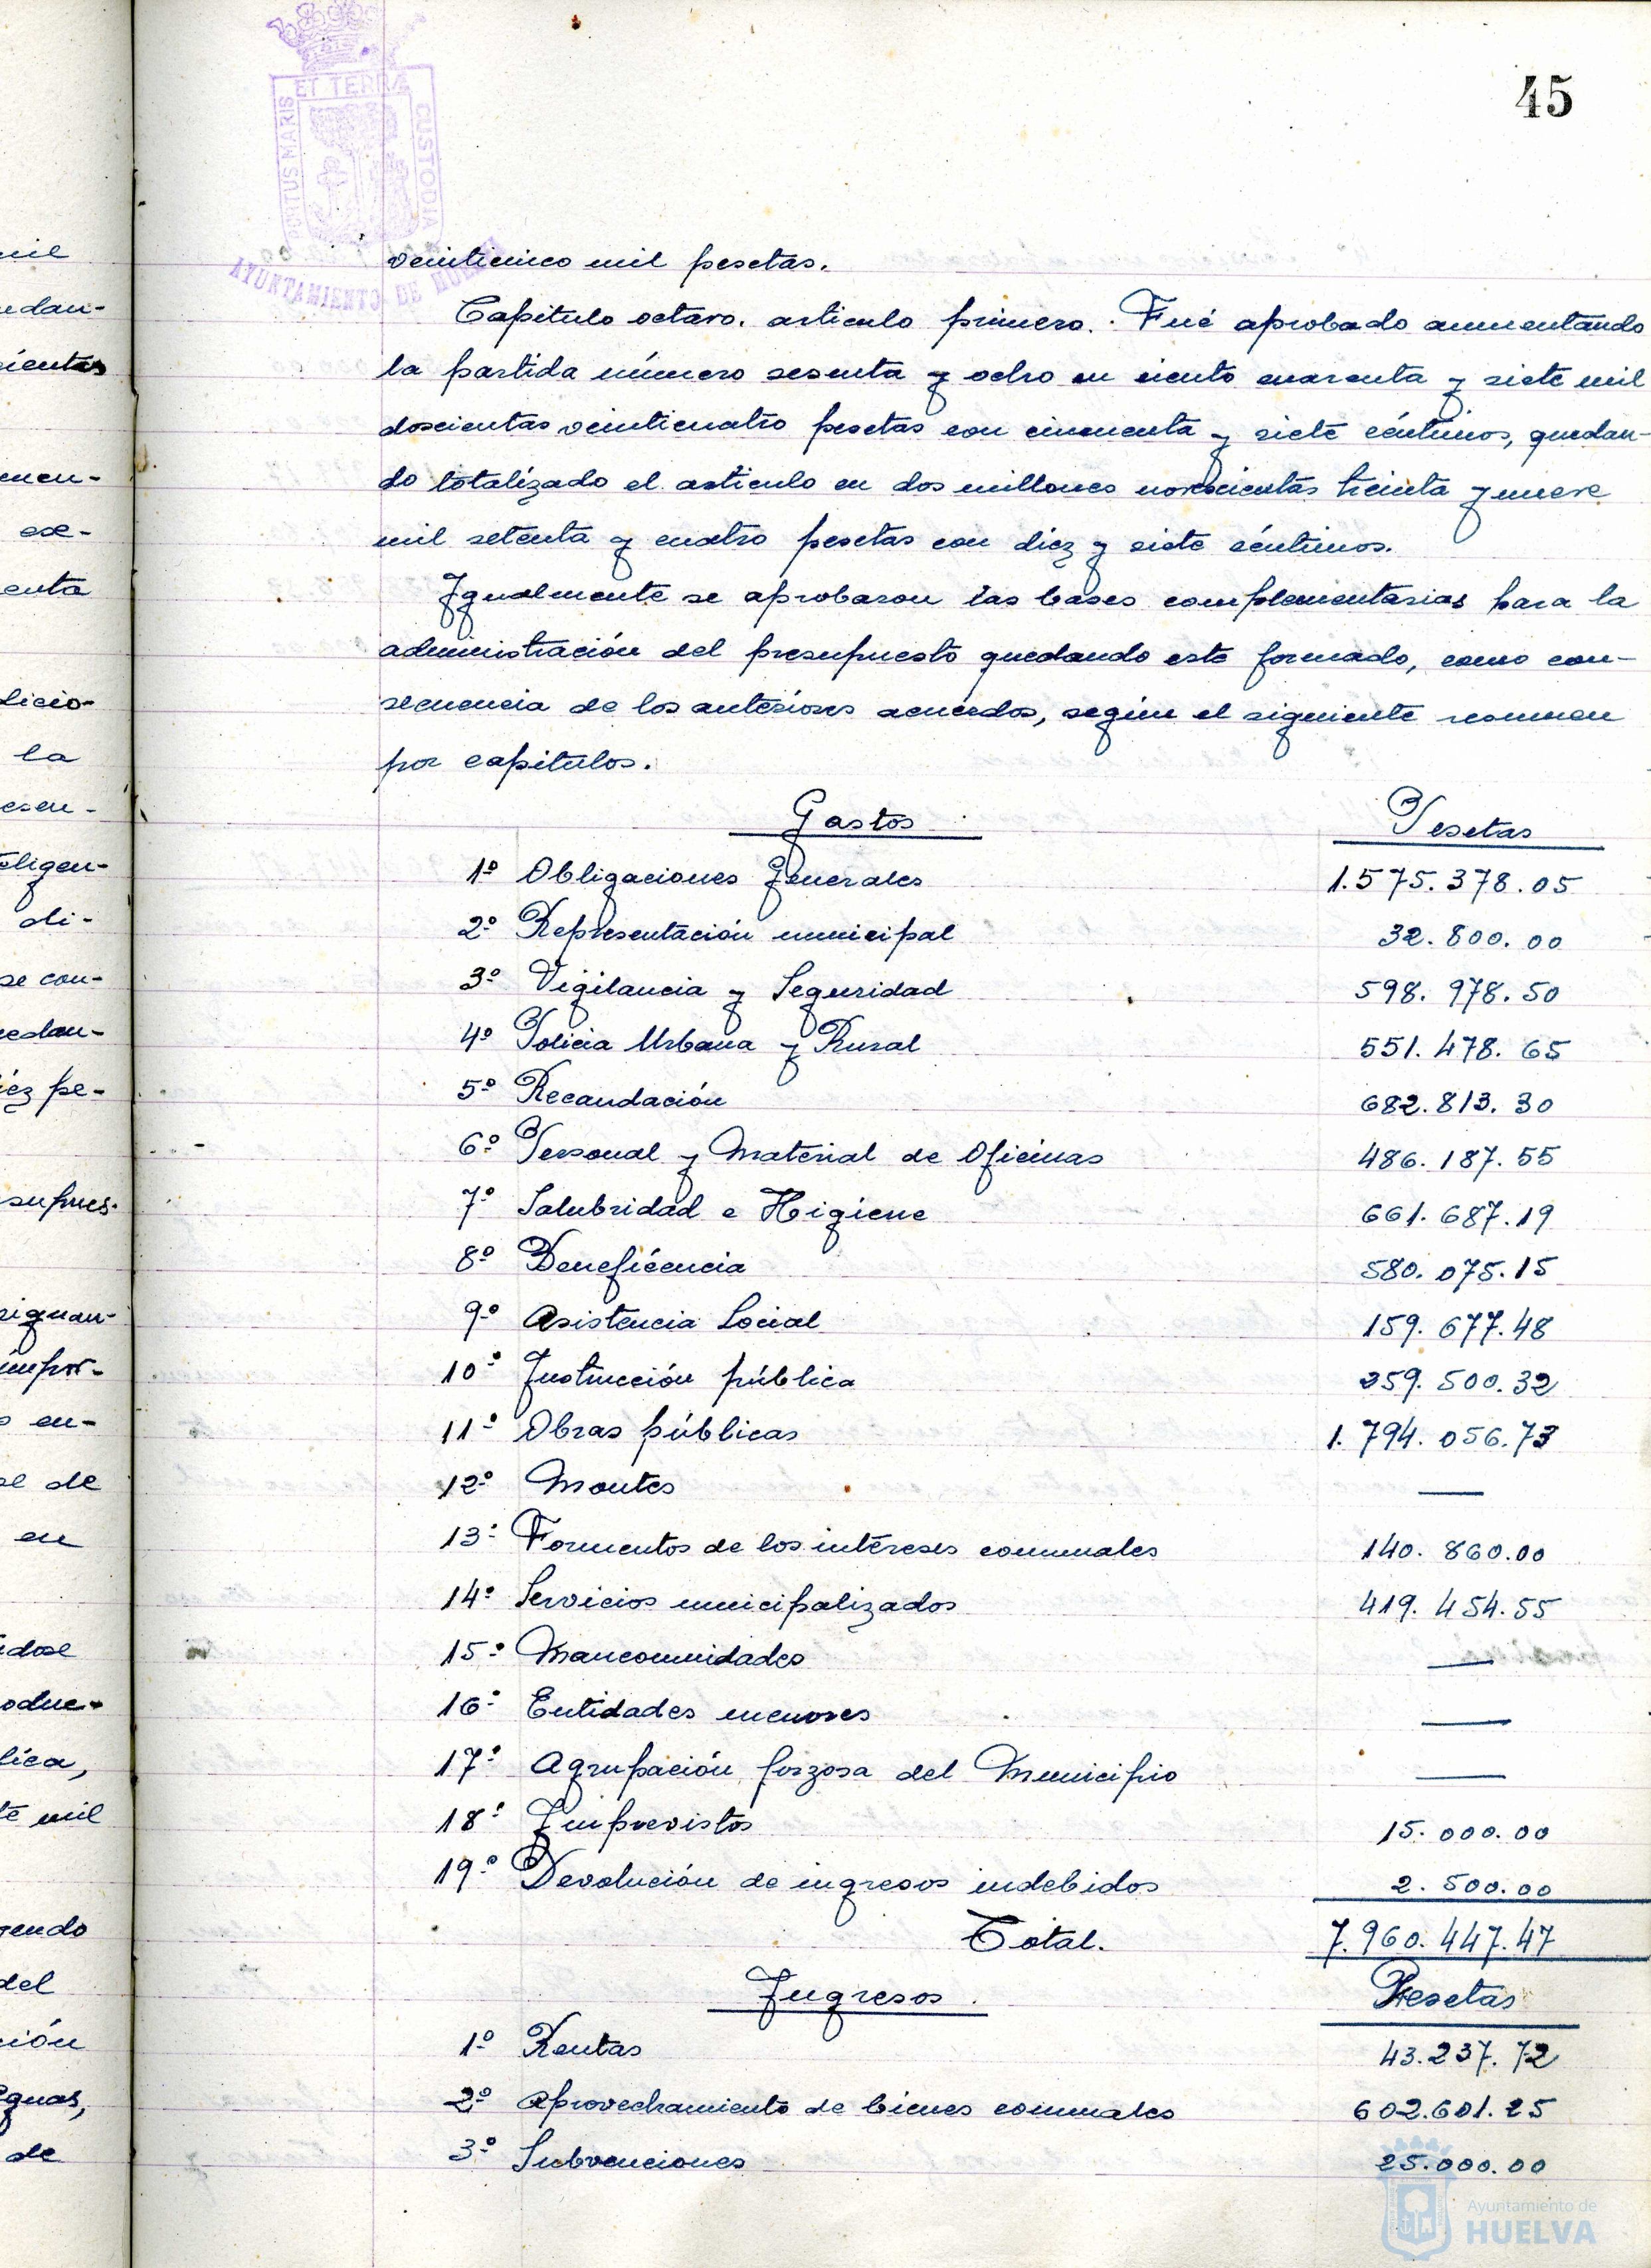 45
PORTUS MARIS ET TERRÆ CUSTODIA
AYUNTAMIENTO DE HUELVA
veinticinco mil pesetas.
Capítulo octavo. artículo primero. · Fué aprobado aumentando
la partida número sesenta y ocho en ciento cuarenta y siete mil
doscientas veinticuatro pesetas con cincuenta y siete céntimos, quedan-
do totalizado el artículo en dos millones novecientas treinta y nueve
mil setenta y cuatro pesetas con diez y siete céntimos.
Igualmente se aprobaron las bases complementarias para la
administración del presupuesto quedando este formado, como con-
secuencia de los anteriores acuerdos, según el siguiente resumen
por capítulos.
Gastos Pesetas
1º Obligaciones Generales 1.575.378.05
2º Representación municipal 32.800.00
3º Vigilancia y Seguridad 598.978.50
4º Policia Urbana y Rural 551.478.65
5º Recaudación 682.813.30
6º Personal y Material de Oficinas 486.187.55
7º Salubridad e Higiene 661.687.19
8º Beneficencia 580.075.15
9º Asistencia Social 159.677.48
10º Instrucción pública 259.500.32
11º Obras públicas 1.794.056.73
12º Montes —
13º Formentos de los intereses comunales 140.860.00
14º Servicios municipalizados 419.454.55
15º Mancomunidades —
16º Entidades menores —
17º Agrupación forzosa del Municipio —
18º Imprevistos 15.000.00
19º Devolución de ingresos indebidos 2.500.00
Total. 7.960.447.47
Ingresos. Pesetas
1º Rentas 43.237.72
2º Aprovechamiento de bienes comunales 602.601.25
3º Subvenciones 25.000.00
Ayuntamiento de
HUELVA